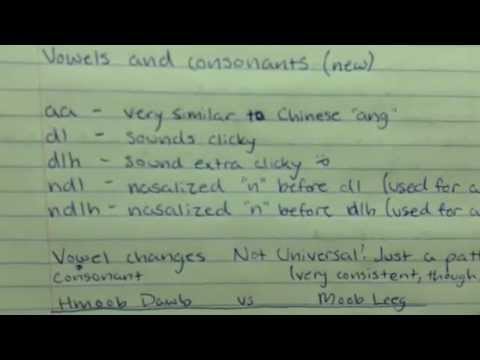 Vowels and consonants (new)
aa - very similar to Chinese "ang"
dl - sounds clicky
dlh - sound extra clicky
ndl - nasalized "n" before dl (used for
ndlh - nasalized "n" before dlh (used for
Vowel changes Not Universal! Just a
consonant (very consistent, though,
Hmoob Dawb vs Moob Leeg